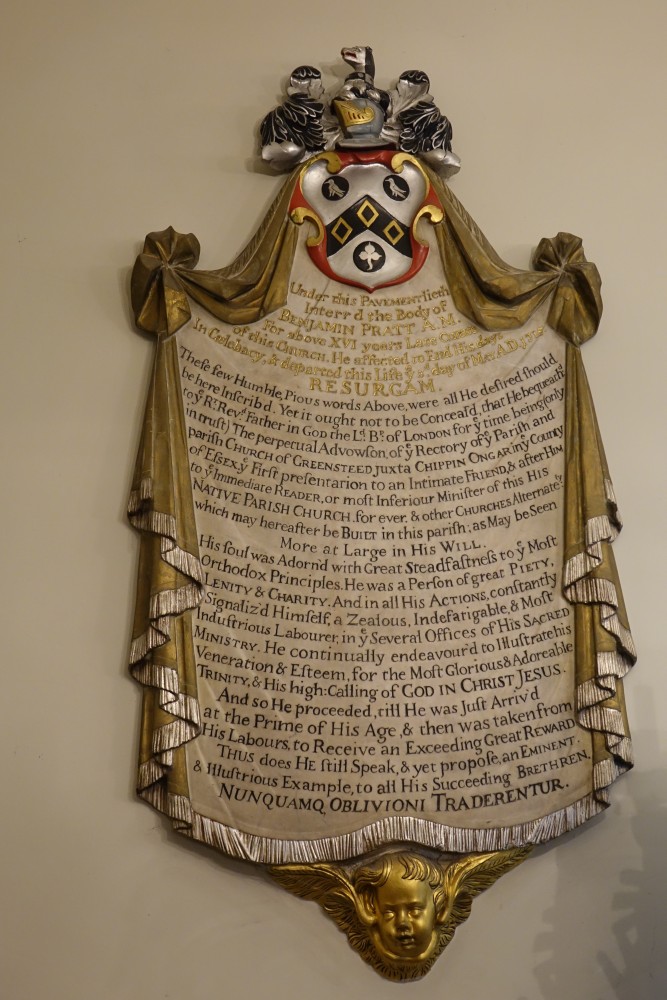 Under this PAVEMENT lieth
Interr'd the Body of
BENJAMIN PRATT A.M.
For above XVI years Late Curate
of this CHURCH. He affected to End His days
In Celebacy, & departed this Life yᵉ 2ᵈ day of May A.D.
RESURGAM.
Theſe few Humble, Pious words Above, were all He deſired ſhould
be here Inſcrib'd. Yet it ought not to be Conceal'd, that He bequeath'd
to yᵉ Rᵗ Revᵈ Father in GOD the Lᵈ Bᵖ of LONDON for yᵉ time being (only
in truſt) The perpetual Advowſon, of yᵉ Rectory of yᵉ Pariſh and
pariſh CHURCH of GREENSTEED juxta CHIPPIN ONGAR in yᵉ County
of Eſſex, yᵉ Firſt preſentation to an Intimate FRIEND, & after HIM
to yᵉ Immediate READER, or moſt Inferiour Miniſter of this HIS
NATIVE PARISH CHURCH, for ever, & other CHURCHES Alternate,
which may hereafter be BUILT in this pariſh; as May be Seen
More at Large in His WILL.
His ſoul was Adorn'd with Great Steadfaſtneſs to yᵉ Moſt
Orthodox Principles. He was a Perſon of great PIETY,
LENITY & CHARITY. And in all His ACTIONS, conſtantly
Signaliz'd Himſelf, a Zealous, Indefatigable, & Moſt
Induſtrious Labourer, in yᵉ Several Offices of His SACRED
MINISTRY. He continually endeavour'd to Illuſtrate his
Veneration & Eſteem, for the Moſt Glorious & Adoreable
TRINITY, & His high: Calling of GOD IN CHRIST JESUS.
And ſo He proceeded, till He was Juſt Arriv'd
at the Prime of His Age, & then was taken from
His Labours, to Receive an Exceeding Great REWARD
THUS does HE ſtill Speak, & yet propoſe, an EMINENT.
& Illuſtrious Example, to all His Succeeding BRETHREN.
NUNQUAMQ, OBLIVIONI TRADERENTUR.